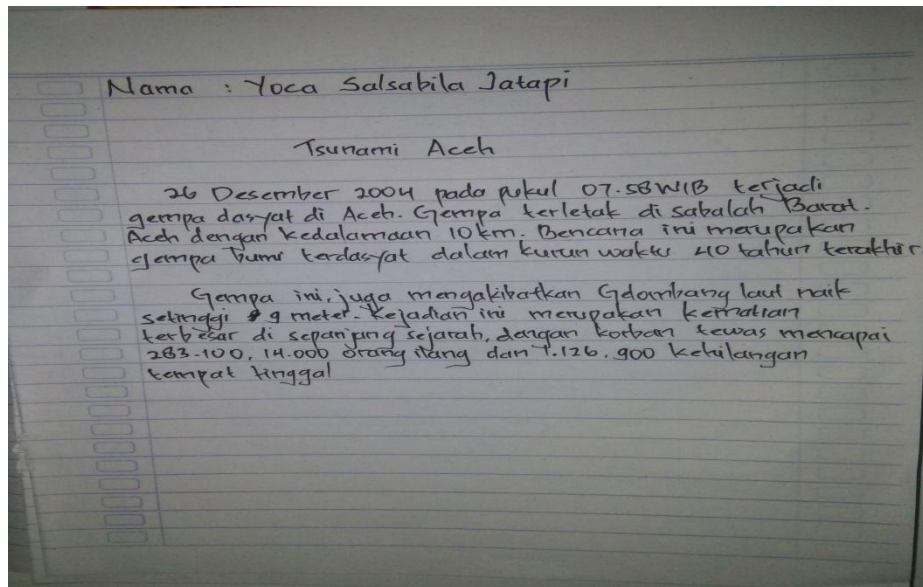 Nama : Yoca Salsabila Jatapi
Tsunami Aceh
26 Desember 2004 pada pukul 07.58 WIB terjadi
gempa dasyat di Aceh. Gempa terletak di sabalah Barat.
Aceh dengan kedalamaan 10 km. Bencana ini merupakan
gempa bumi terdasyat dalam kurun waktu 40 tahun terakhir
Gempa ini, juga mengakibatkan Gelombang laut naik
setinggi 9 meter. Kejadian ini merupakan kematian
terbesar di sepanjang sejarah, dengan korban tewas mencapai
283.100, 14.000 orang ilang dan 1.126.900 kehilangan
tempat tinggal